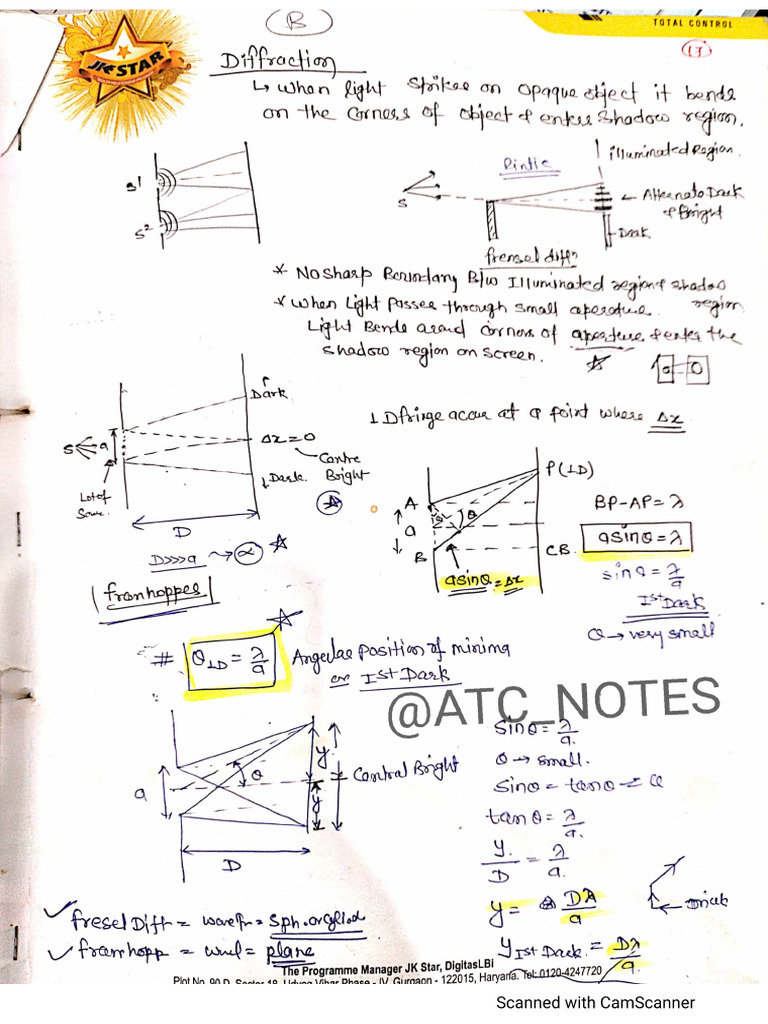 B
TOTAL CONTROL
17
JK STAR
Diffraction
↳ when light strikes on opaque object it bends
on the corners of object & enters shadow region.
S1
S2
illuminated Region.
S
← Alternate Dark
& Bright
Dark
frensel diffn
* No sharp Boundary B/w Illuminated region & shadow
region
* when Light Passes through small aperature.
Light Bends around corners of aperture & enter the
shadow region on screen.
a
Dark
S
a
Δx=0
Centre
Bright
Dark.
Lot of
Source
D
D>>>a → ∝
franhoppes
1 Dfringe accur at a point where Δx
P(1D)
A
a
θ
B
C.B.
asinθ = Δx
BP-AP=λ
asinθ=λ
sinθ = λ/a
Ist Dark
θ → very small
# θ1D = λ/a Angular position of minima
or Ist Dark
@ATC_NOTES
a
θ
y
y
Central Bright
D
sinθ = λ/a.
θ → small.
sinθ = tanθ = θ
tanθ = λ/a.
y./D = λ/a.
y = Dλ/a
yIst Dark = Dλ/a.
✓ fresel Diff = wavefr = Sph. or cylind
✓ framhopp = wavef = plane
The Programme Manager JK Star, DigitasLBi
Plot No. 90 D, Sector 18, Udyog Vihar Phase - IV, Gurgaon - 122015, Haryana. Tel: 0120-4247720
Scanned with CamScanner